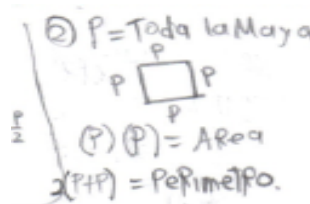 ② P = Toda la Maya
P
P P
P
P/2
(P) (P) = ARea
2(P+P) = PeRimetRo.